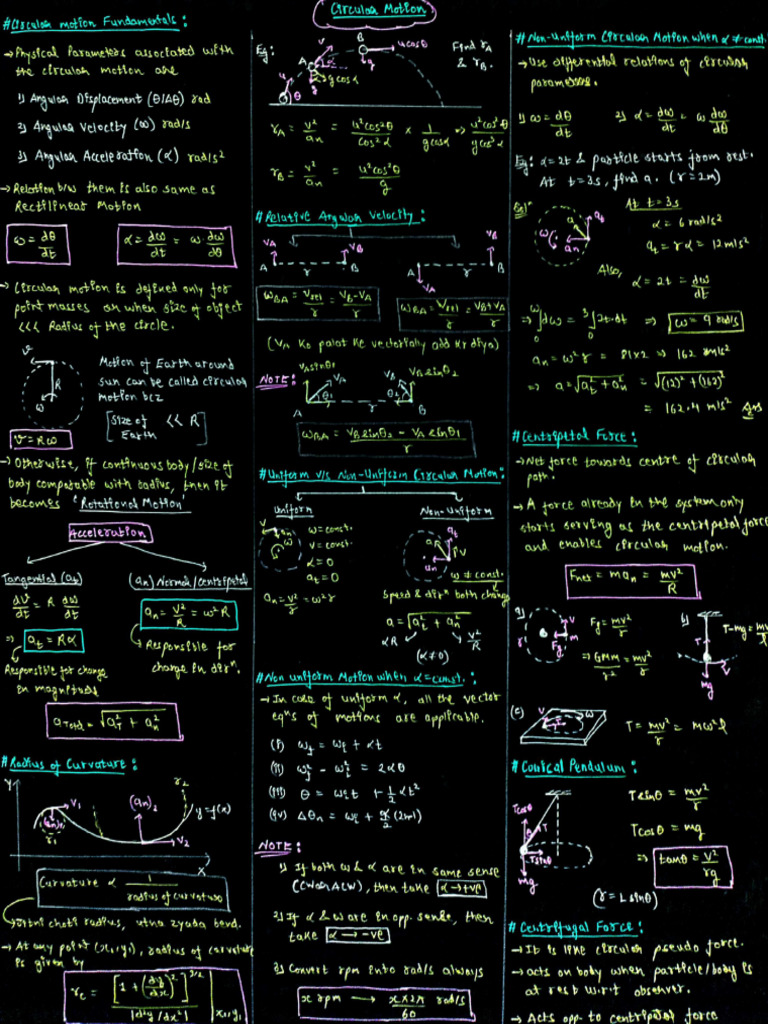 Circular Motion
#Circular motion Fundamentals:
→ Physical Parameters associated with
the circular motion are
1) Angular Displacement (θ/Δθ) rad
2) Angular Velocity (ω) rad/s
3) Angular Acceleration (α) rad/s²
→ Relation b/w them is also same as
Rectilinear Motion
ω = dθ/dt
α = dω/dt = ω·dω/dθ
→ Circular motion is defined only for
point masses or when size of object
<<< Radius of the circle.
v
R
ω
Motion of Earth around
sun can be called circular
motion bcz
[Size of Earth << R]
v = Rω
→ Otherwise, if continuous body/size of
body comparable with radius, then it
becomes 'Rotational Motion'
Acceleration
Tangential (at)
dv/dt = R dω/dt
⇒ at = Rα
Responsible for change
in magnitude
(an) Normal/centripetal
an = v²/R = ω²R
↳ Responsible for
change in dirⁿ.
aTotal = √(aT² + an²)
#Radius of Curvature:
Y
V1
(an)1
r1
(an)2
r2
y=f(x)
V2
X
Curvature α 1/radius of curvature
→ jitni choti radius, utna zyada bend.
→ At any point (x1,y1), radius of curvature
is given by
rc = [1 + (dy/dx)²]^3/2 / |d²y/dx²| | x1,y1
Eg:
u
θ
A
v
α
g
gcosα
B
ucosθ
g
Find rA
& rB.
rA = v²/an = u²cos²θ/cos²α × 1/gcosα ⇒ u²cos²θ/gcos³α
rB = v²/an = u²cos²θ/g
#Relative Angular Velocity:
VA
VB
A
r
B
VB
A
r
B
VA
ωBA = Vrel/r = VB-VA/r
ωBA = Vrel/r = VB+VA/r
(VA ko palat ke vectorially add kr diya)
NOTE:
VAsinθ1
VA
θ1
A
r
VB
VBsinθ2
θ2
B
ωBA = VBsinθ2 - VAsinθ1/r
#Uniform v/s Non-Uniform Circular Motion:
Uniform
V
an
ω
ω = const.
v = const.
α = 0
at = 0
an = v²/r = ω²r
Non-Uniform
at
a
an
V
ω ≠ const.
Speed & dirⁿ both change
a = √(at² + an²)
αR
v²/R
(α≠0)
#Non uniform Motion when α=const.:
→ In case of uniform α, all the vector
eqⁿs of motions are applicable.
(i) ωf = ωi + αt
(ii) ωf² - ωi² = 2αθ
(iii) θ = ωit + 1/2 αt²
(iv) Δθn = ωi + α/2 (2n-1)
NOTE:
1) If both ω & α are in same sense
(CW or ACW), then take α→+ve
2) If α & ω are in opp. sense, then
take α→-ve
3) Convert rpm into rad/s always
x rpm → x×2π/60 rad/s
#Non-Uniform Circular Motion when α≠const.
→ Use differential relations of circular
parameters.
1) ω = dθ/dt
2) α = dω/dt = ω dω/dθ
Eg: α=2t & particle starts from rest.
At t=3s, find a. (r=2m)
ω
a
at
an
At t=3s
α = 6 rad/s²
at = rα = 12m/s²
Also,
α = 2t = dω/dt
⇒ ∫₀^ω dω = ∫₀³ 2t·dt ⇒ ω = 9 rad/s
an = ω²r = 81×2 ⇒ 162 m/s²
⇒ a = √(at² + an²) = √((12)² + (162)²)
= 162.4 m/s² Ans
#Centripetal Force:
→ Net force towards centre of circular
path.
→ A force already in the system only
starts serving as the centripetal force
and enables circular motion.
Fnet = man = mv²/R
a)
r
V
m
Fg
Fg = mv²/r
⇒ GMm/r² = mv²/r
b)
T
V
mg
T-mg = mv
(c)
V
ω
T
T = mv²/r = mω²l
#Conical Pendulum:
Tcosθ
θ
T
Tsinθ
mg
Tsinθ = mv²/r
Tcosθ = mg
⇒ tanθ = v²/rg
(r = Lsinθ)
#Centrifugal Force:
→ It is like circular pseudo force.
→ acts on body when particle/body is
at rest w.r.t observer.
→ Acts opp. to centripetal force